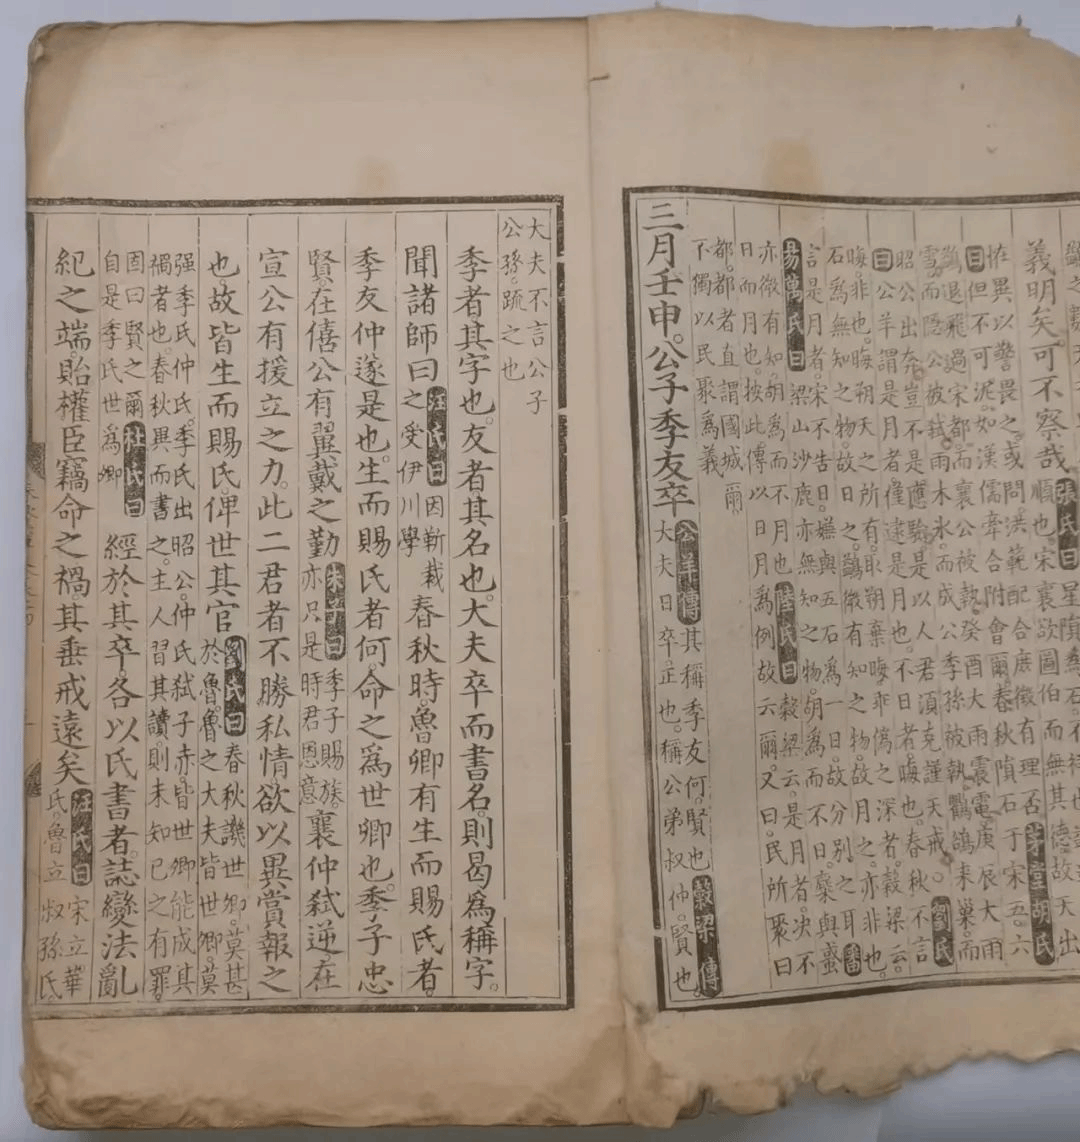 義明矣。可不察哉。
順也。宋襄欲圖伯而無其德。故天出
怪異以警畏之。或問洪範配合庶徵有理否茅堂胡氏
曰但不可泥。如漢儒牽合附會爾。春秋隕石于宋五。六
鷁退飛過宋都。而襄公被執。癸酉大雨震電。庚辰大雨
雪。而隱公被弑。雨木冰。而成公季孫被執。鸜鵒來巢。而
昭公出奔。豈不是應驗。是以人君須克謹天戒。劉氏
曰公羊謂是月者。僅逮是月也。不日者。晦也。春秋不言
晦。非也。晦朔天之所有。取朔棄晦。乖僞之深者。穀梁云。
石爲無知之物。故日之。鷁微有知之物。故月之。亦非也。
言是月者。宋不告日。嫌與五石爲一日。故分別之耳番
昜萬氏曰梁山沙鹿。亦無知之物。胡爲而不日。
亦微有知。胡爲而不月也陸氏曰穀梁云。是月者。決不
日而月也。按此傳以日月爲例。故云爾。又曰。民所聚曰
都。都者。直謂國城爾
不獨以民聚爲義
三月壬申。公子季友卒公羊傳其稱季友何。賢也穀梁傳
大夫日卒。正也。稱公弟叔仲。賢也。
大夫不言公子
公孫。疏之也
季者其字也。友者其名也。大夫卒而書名。則曷爲稱字。
聞諸師曰汪氏曰因靳裁之受伊川學春秋時。魯卿有生而賜氏者。
季友仲遂是也。生而賜氏者何。命之爲世卿也。季子忠
賢。在僖公有翼戴之勤朱子曰季子賜族。亦只是時君恩意襄仲弑逆。在
宣公有援立之力。此二君者。不勝私情。欲以異賞報之
也。故皆生而賜氏。俾世其官劉氏曰春秋譏世卿。莫甚於魯。魯之大夫皆世卿。莫
强季氏仲氏。季氏出昭公。仲氏弑子赤。皆世卿能成其
禍者也。春秋異而書之。主人習其讀。則未知己之有罪。
固曰賢之爾杜氏曰自是季氏世爲卿經於其卒。各以氏書者。誌變法亂
紀之端。貽權臣竊命之禍。其垂戒遠矣汪氏曰宋立華氏。魯立叔孫氏